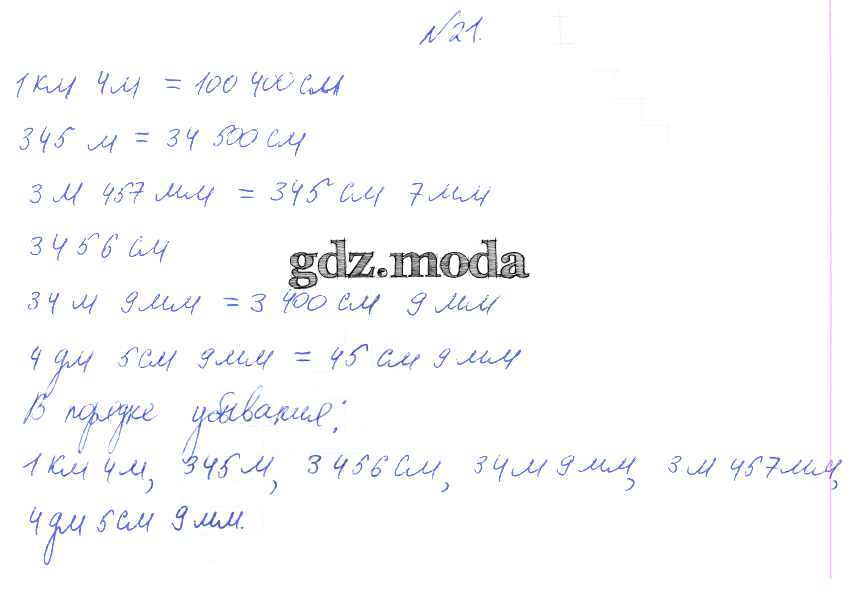 №21.
1 км 4 м = 100 400 см
345 м = 34 500 см
3 м 457 мм = 345 см 7 мм
3456 см
gdz.moda
34 м 9 мм = 3 400 см 9 мм
4 дм 5 см 9 мм = 45 см 9 мм
В порядке убывания:
1 км 4 м, 345 м, 3 456 см, 34 м 9 мм, 3 м 457 мм,
4 дм 5 см 9 мм.